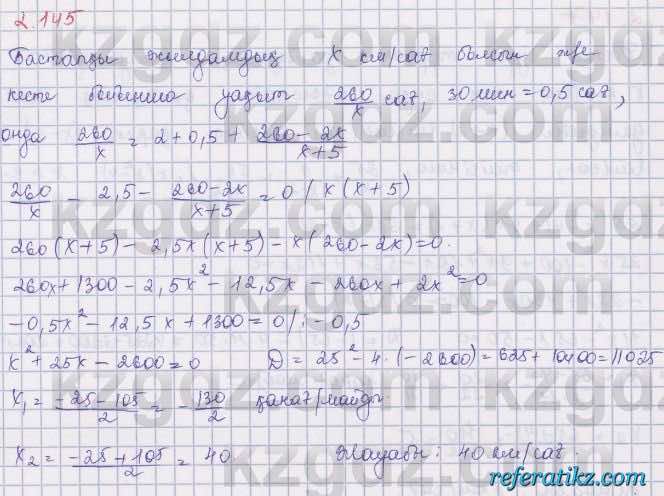 2.145
Бастапқы жылдамдық x км/сағ болсын және
кесте бойынша уақыт 260/x сағ, 30 мин = 0,5 сағ,
онда 260/x = 2 + 0,5 + (260 - 2x)/(x + 5)
260/x - 2,5 - (260 - 2x)/(x + 5) = 0 / x(x + 5)
260(x + 5) - 2,5x(x + 5) - x(260 - 2x) = 0.
260x + 1300 - 2,5x² - 12,5x - 260x + 2x² = 0
-0,5x² - 12,5x + 1300 = 0 /: -0,5
x² + 25x - 2600 = 0 D = 25² - 4·(-2600) = 625 + 10400 = 11025
x₁ = (-25 - 105)/2 = -130/2 қанағ/майды
x₂ = (-25 + 105)/2 = 40 Жауабы: 40 км/сағ.
kzgdz.com
referatikz.com